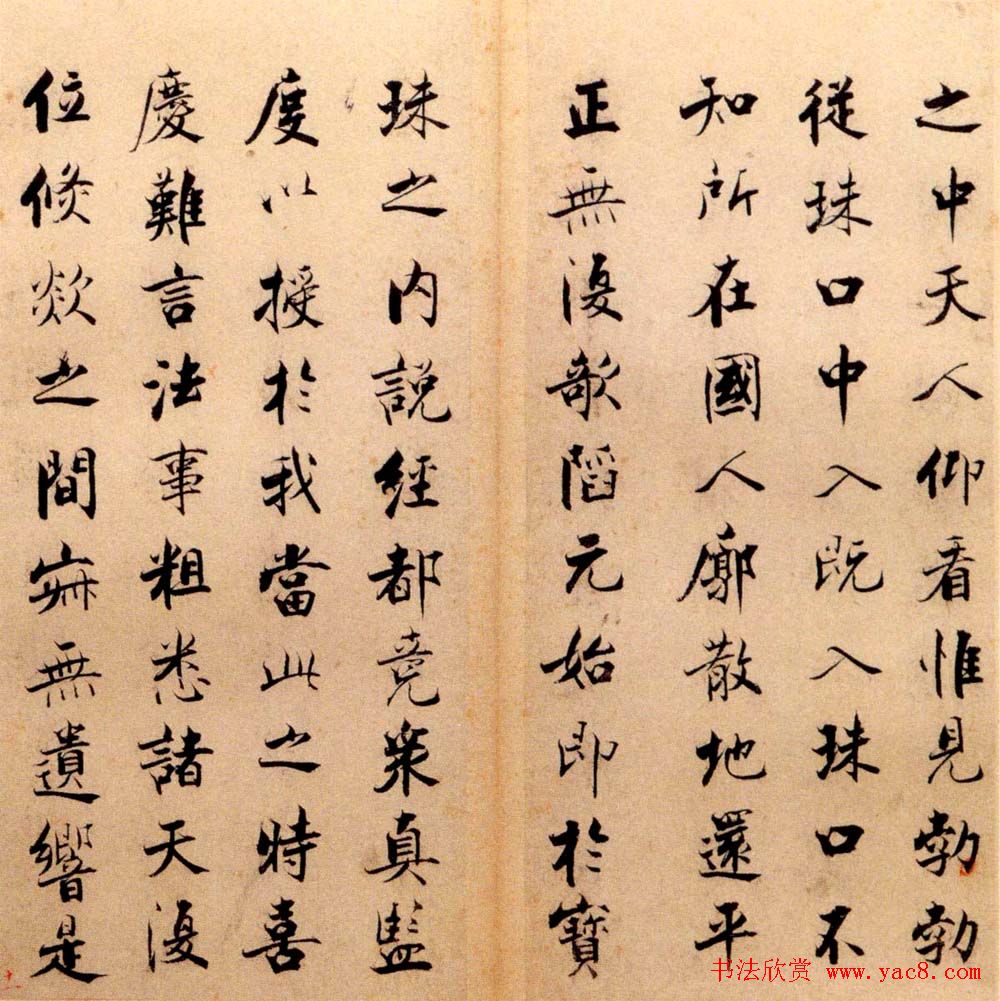 之中天人仰看惟見勃勃
從珠口中入既入珠口不
知所在國人廓散地還平
正無復欹陷元始即於寶
珠之内說經都竟衆真監
度以授於我當此之時喜
慶難言法事粗悉諸天復
位倏欻之間寂無遺響是
书法欣赏 www.yac8.com